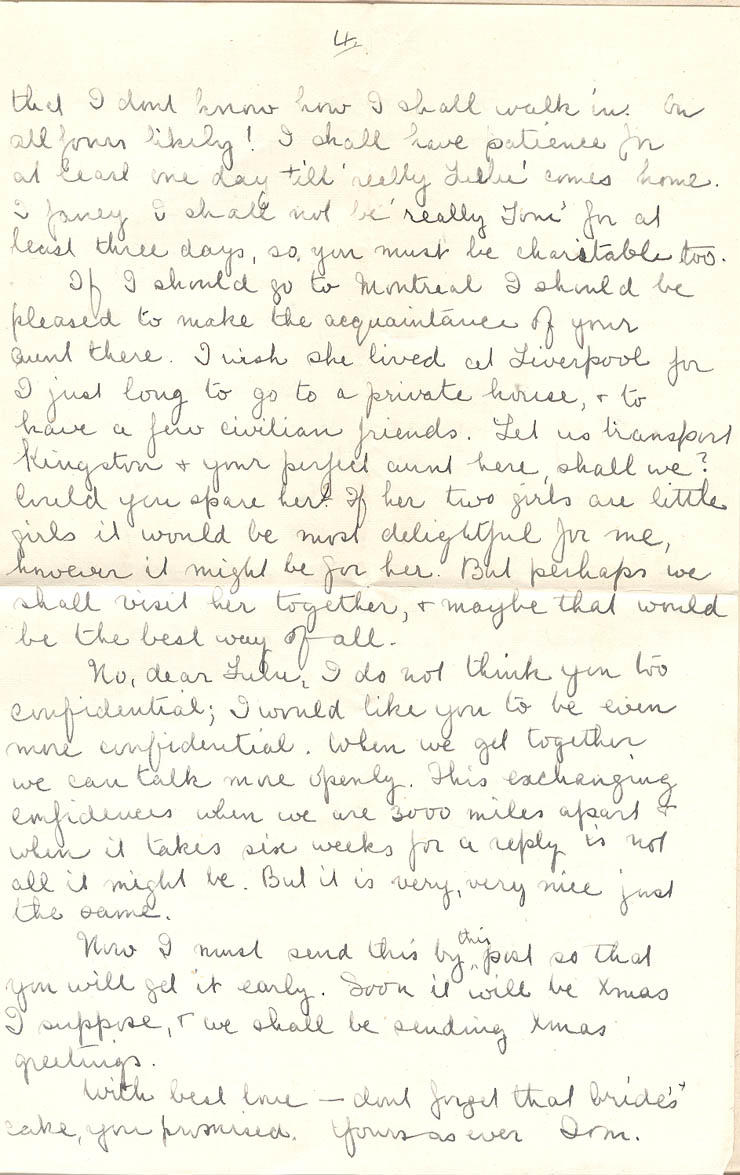 4.
that I dont know how I shall walk in. On
all fours likely! I shall have patience for
at least one day till 'really Lulu' comes home.
I fancy I shall not be 'really Tom' for at
least three days, so, you must be charitable too.
If I should go to Montreal I should be
pleased to make the acquaintance of your
aunt there. I wish she lived at Liverpool for
I just long to go to a private house, + to
have a few civilian friends. Let us transport
Kingston + your perfect aunt here, shall we?
Could you spare her? If her two girls are little
girls it would be most delightful for me,
however it might be for her. But perhaps we
shall visit her together, + maybe that would
be the best way of all.
No, dear Lulu, I do not think you too
confidential; I would like you to be even
more confidential. When we get together
we can talk more openly. This exchanging
confidences when we are 3000 miles apart +
when it takes six weeks for a reply is not
all it might be. But it is very, very nice just
the same.
Now I must send this by this post so that
you will get it early. Soon it will be Xmas
I suppose, + we shall be sending Xmas
greetings.
With best love — dont forget that bride's
cake, you promised. Yours as ever Tom.